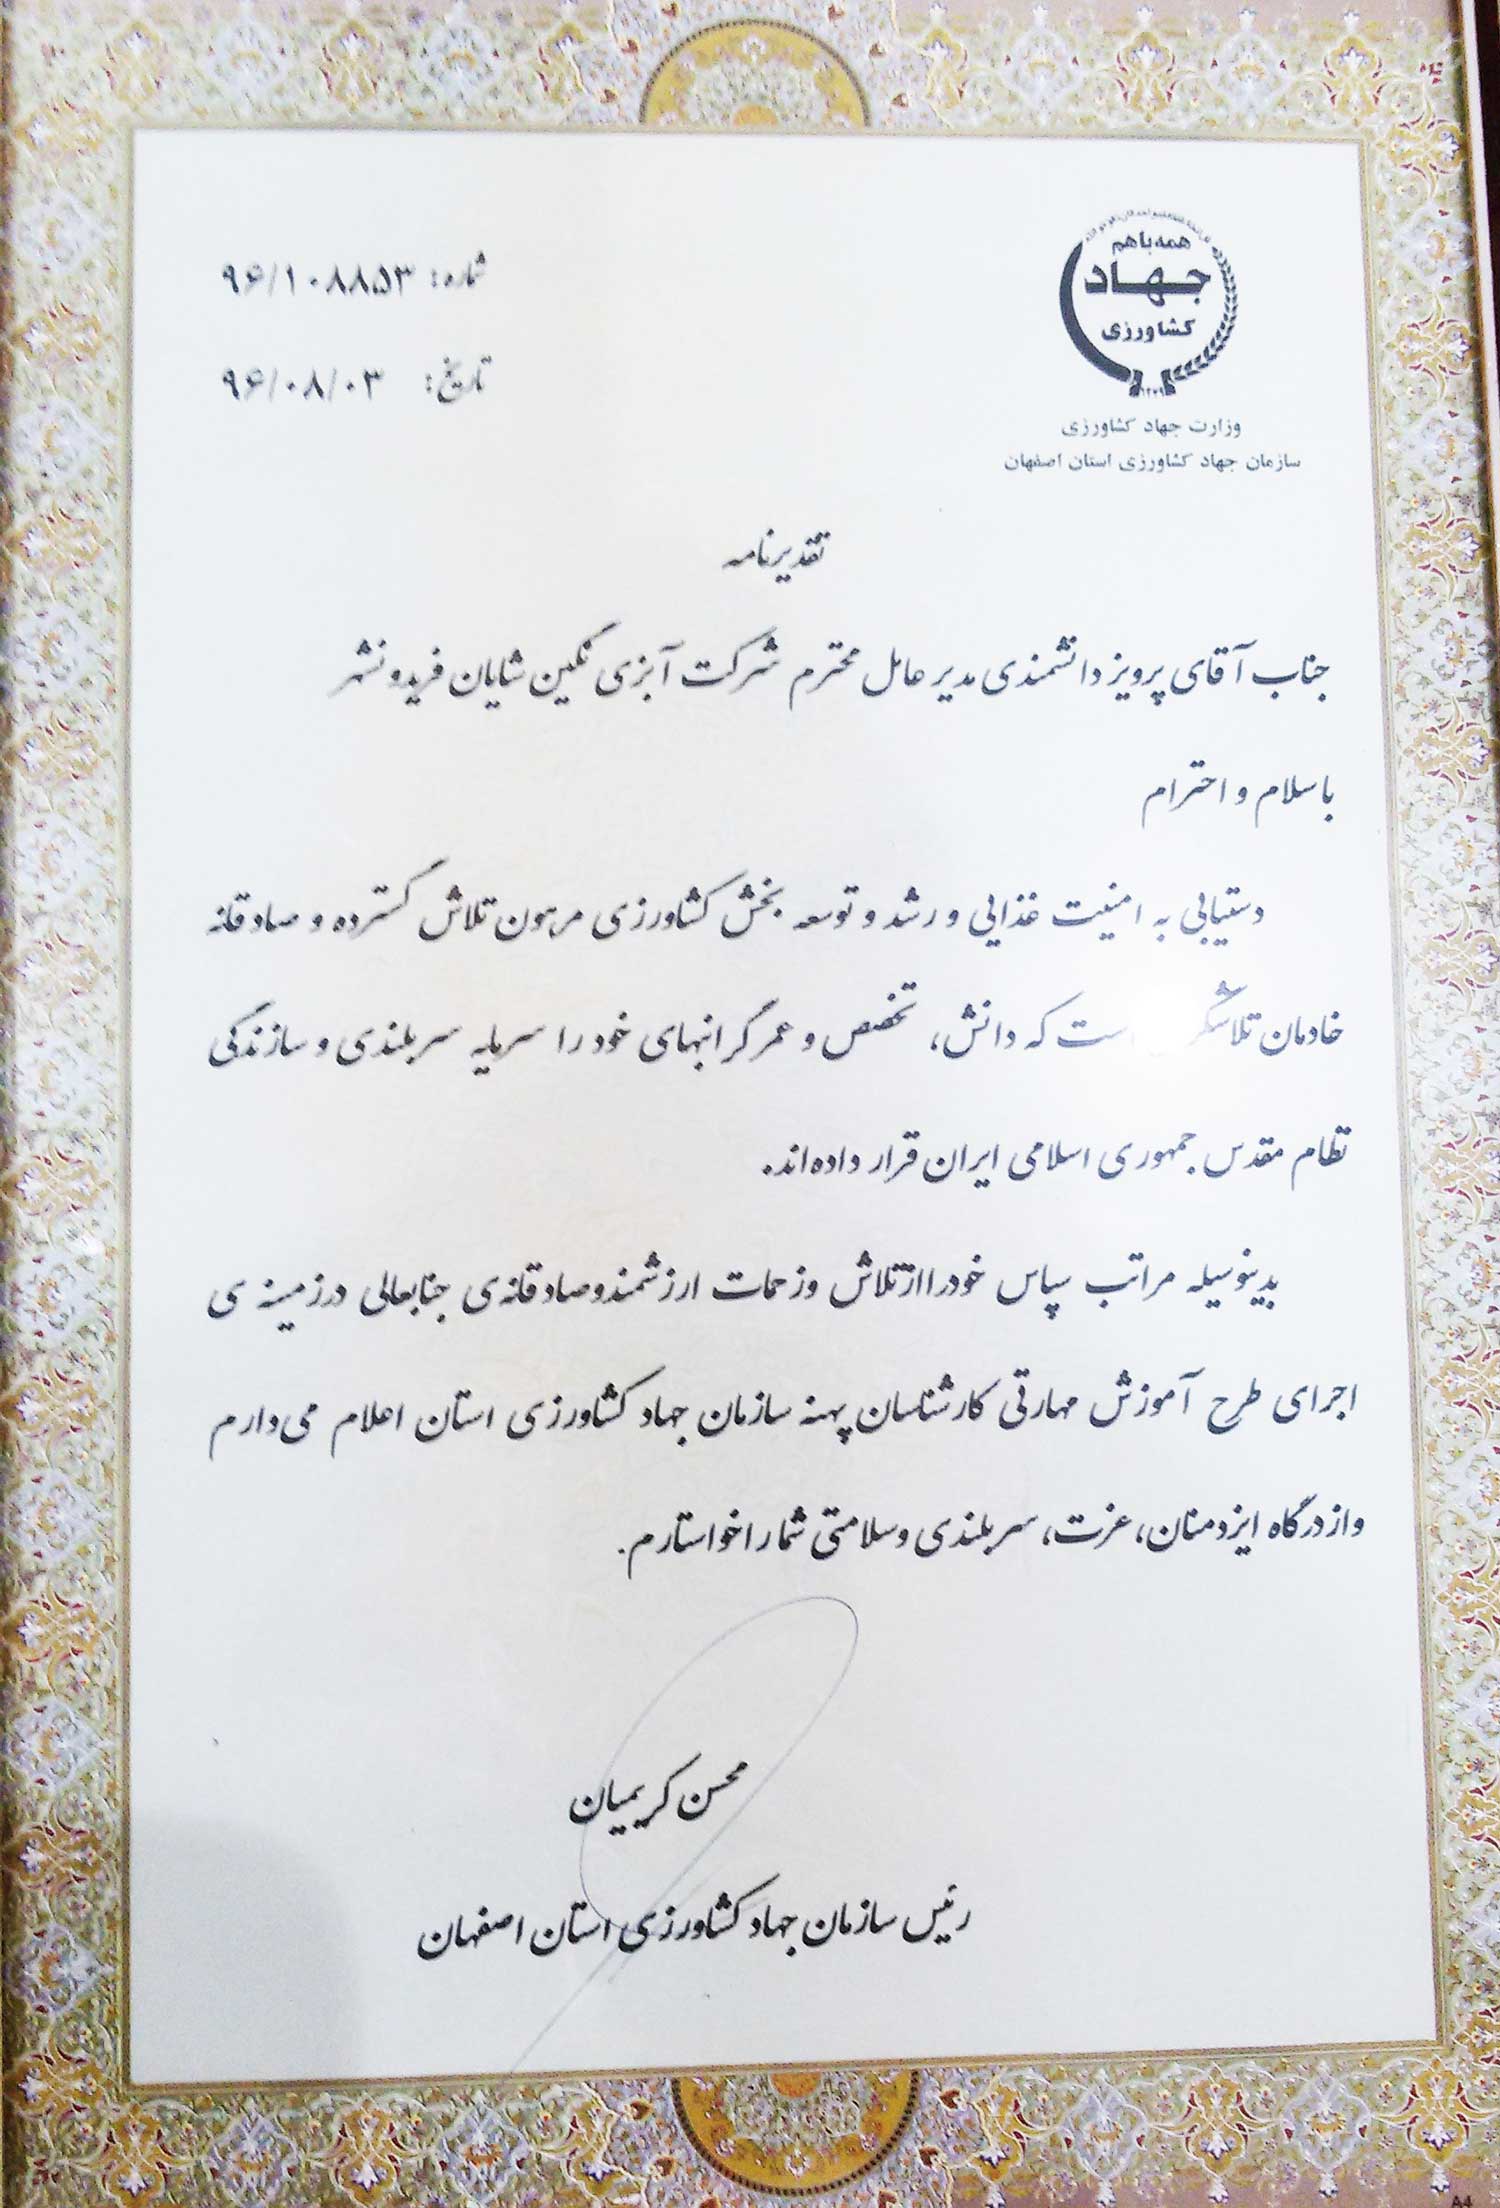 همه با هم
جهاد
کشاورزی
۱۳۷۹
وزارت جهاد کشاورزی
سازمان جهاد کشاورزی استان اصفهان
شماره: ۹۶/۱۰۸۸۵۳
تاریخ: ۹۶/۰۸/۰۳
تقدیرنامه
جناب آقای پرویز دانشمندی مدیر عامل محترم شرکت آبزی نگین شایان فریدونشهر
با سلام و احترام
دستیابی به امنیت غذایی و رشد و توسعه بخش کشاورزی مرهون تلاش گسترده و صادقانه
خادمان که دانش، تخصص و عمر گرانبهای خود را سرمایه سربلندی و سازندگی
نظام مقدس جمهوری اسلامی ایران قرار داده‌اند.
بدینوسیله مراتب سپاس خود را از تلاش و زحمات ارزشمند و صادقانه‌ی جنابعالی در زمینه ی
اجرای طرح آموزش مهارتی کارشناسان پهنه سازمان جهاد کشاورزی استان اعلام می‌دارم
و از درگاه ایزد منان، عزت، سربلندی و سلامتی شما را خواستارم.
محسن کریمیان
رئیس سازمان جهاد کشاورزی استان اصفهان
A4